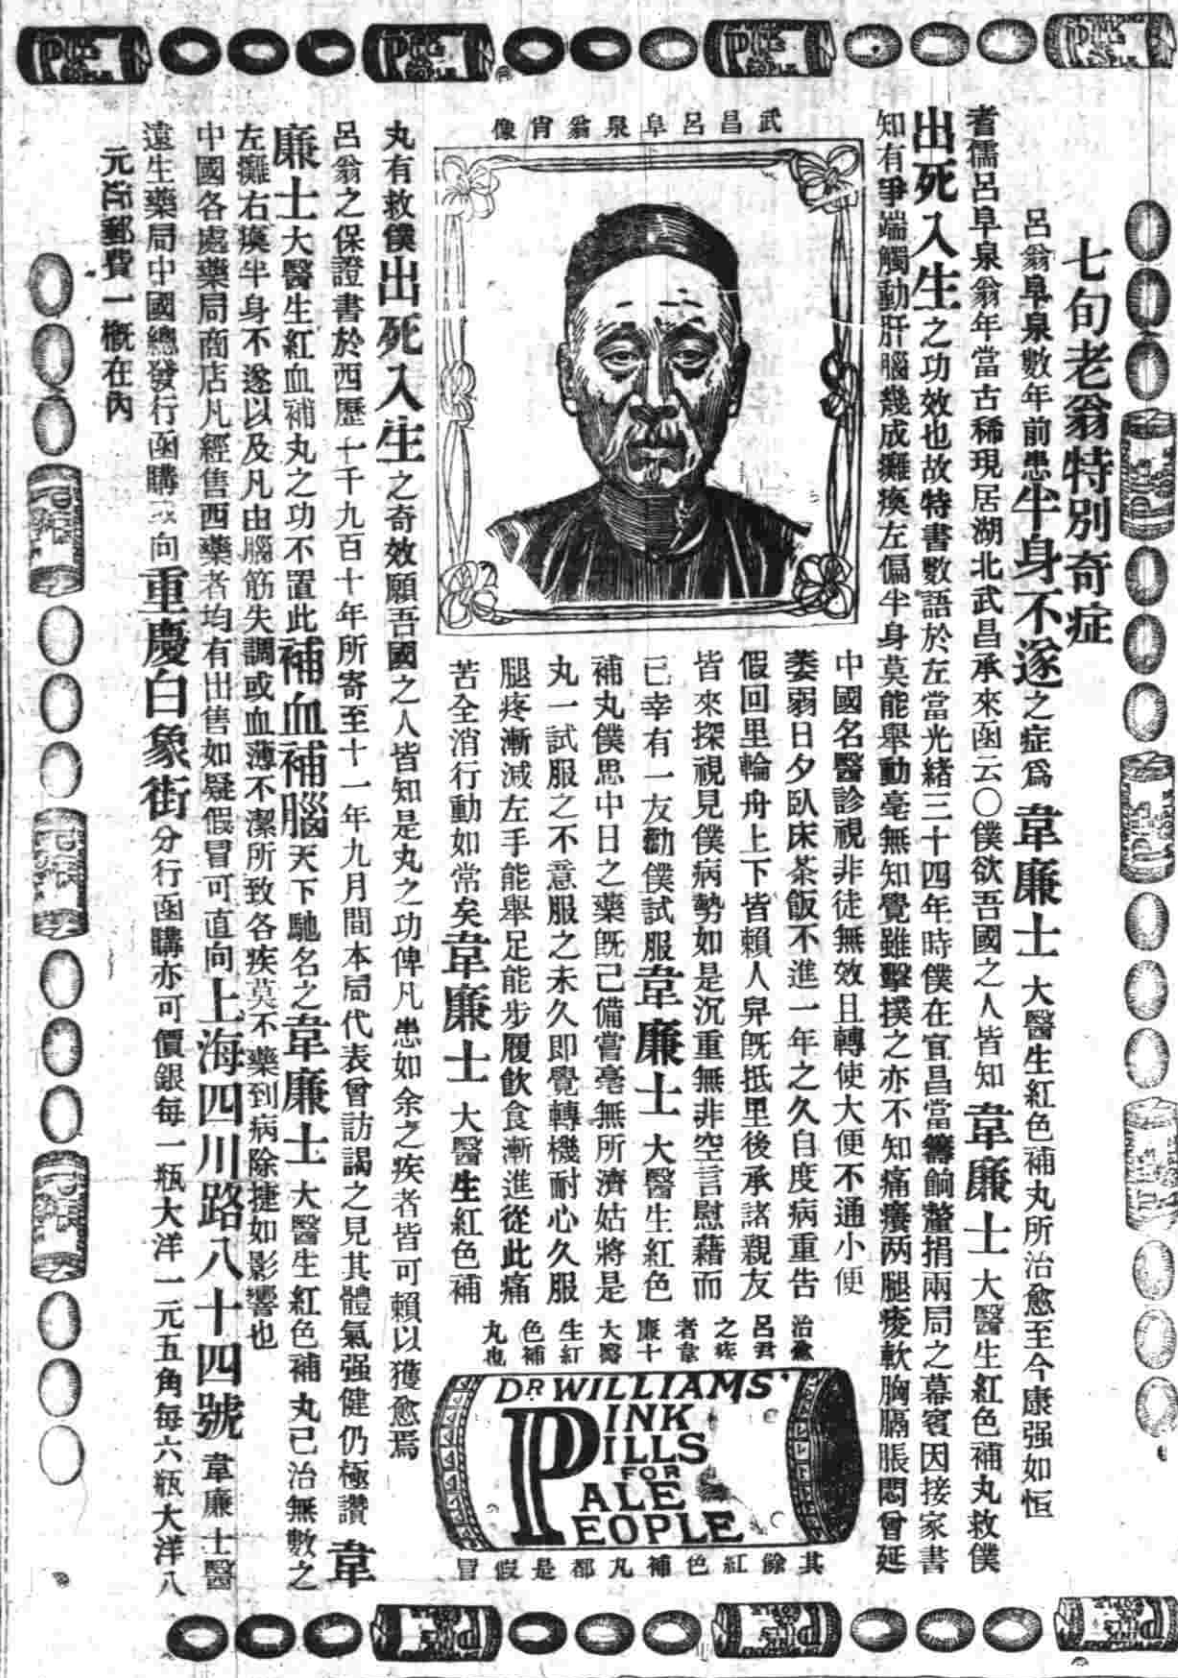 七旬老翁特別奇症
呂翁阜泉數年前患半身不遂之症爲韋廉士大醫生紅色補丸所治愈至今康强如恒
耆儒呂阜泉翁年當古稀現居湖北武昌承來函云〇僕欲吾國之人皆知韋廉士大醫生紅色補丸救僕
出死入生之功效也故特書數語於左當光緒三十四年時僕在宜昌當籌餉釐捐兩局之幕賓因接家書
知有爭端觸動肝腦幾成癱瘓左偏半身莫能舉動毫無知覺雖擊撲之亦不知痛癢两腿痠軟胸膈脹悶曾延
武昌呂阜泉翁肖像
中國名醫診視非徒無效且轉使大便不通小便
萎弱日夕臥床茶飯不進一年之久自度病重告
假回里輪舟上下皆賴人舁旣抵里後承諸親友
皆來探視見僕病勢如是沉重無非空言慰藉而
已幸有一友勸僕試服韋廉士大醫生紅色
補丸僕思中日之藥旣已備嘗毫無所濟姑將是
丸一試服之不意服之未久即覺轉機耐心久服
腿疼漸減左手能舉足能步履飲食漸進從此痛
苦全消行動如常矣韋廉士大醫生紅色補
治愈呂君之疾者韋廉士大醫生紅色補丸也
DR WILLIAMS'
PINK
PILLS
FOR
PALE
PEOPLE
其餘紅色補丸都是假冒
丸有救僕出死入生之奇效願吾國之人皆知是丸之功俾凡患如余之疾者皆可賴以獲愈焉
呂翁之保證書於西歷一千九百十年所寄至十一年九月間本局代表曾訪謁之見其體氣强健仍極讚韋
廉士大醫生紅血補丸之功不置此補血補腦天下馳名之韋廉士大醫生紅色補丸已治無數之
左癱右瘓半身不遂以及凡由腦筋失調或血薄不潔所致各疾莫不藥到病除捷如影響也
中國各處藥局商店凡經售西藥者均有出售如疑假冒可直向上海四川路八十四號韋廉士醫
遠生藥局中國總發行函購或向重慶白象街分行函購亦可價銀每一瓶大洋一元五角每六瓶大洋八
元郵費一概在內